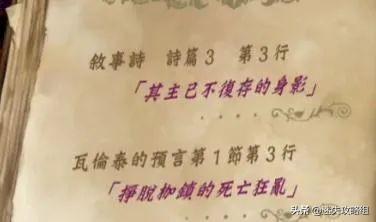 敘事詩　詩篇3　第3行
「其主已不復存的身影」
瓦倫泰的預言第1節第3行
「掙脫枷鎖的死亡狂亂」
头条 @迷失攻略组